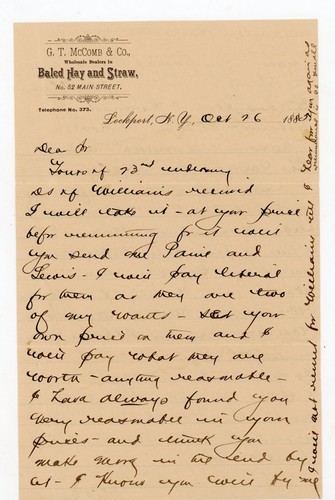 G. T. McCOMB & CO.,
Wholesale Dealers in
Baled Hay and Straw,
No. 52 MAIN STREET.
Telephone No. 373.
Lockport, N.Y. Oct 26 188
Dear Sir
Yours of 23rd
Ds of Williams received
I will take it - at your price
before remunning for it will
you send me Paine and
Lewis - I will pay liberal
for them as they are two
of my wants - set your
own price on them and I
will pay what they are
worth - anything reasonable -
I have always found you
very reasonable in your
prices - and think you
make money in the end by
it - I know you will by me
I will not remit for Williams till I hear from you again as